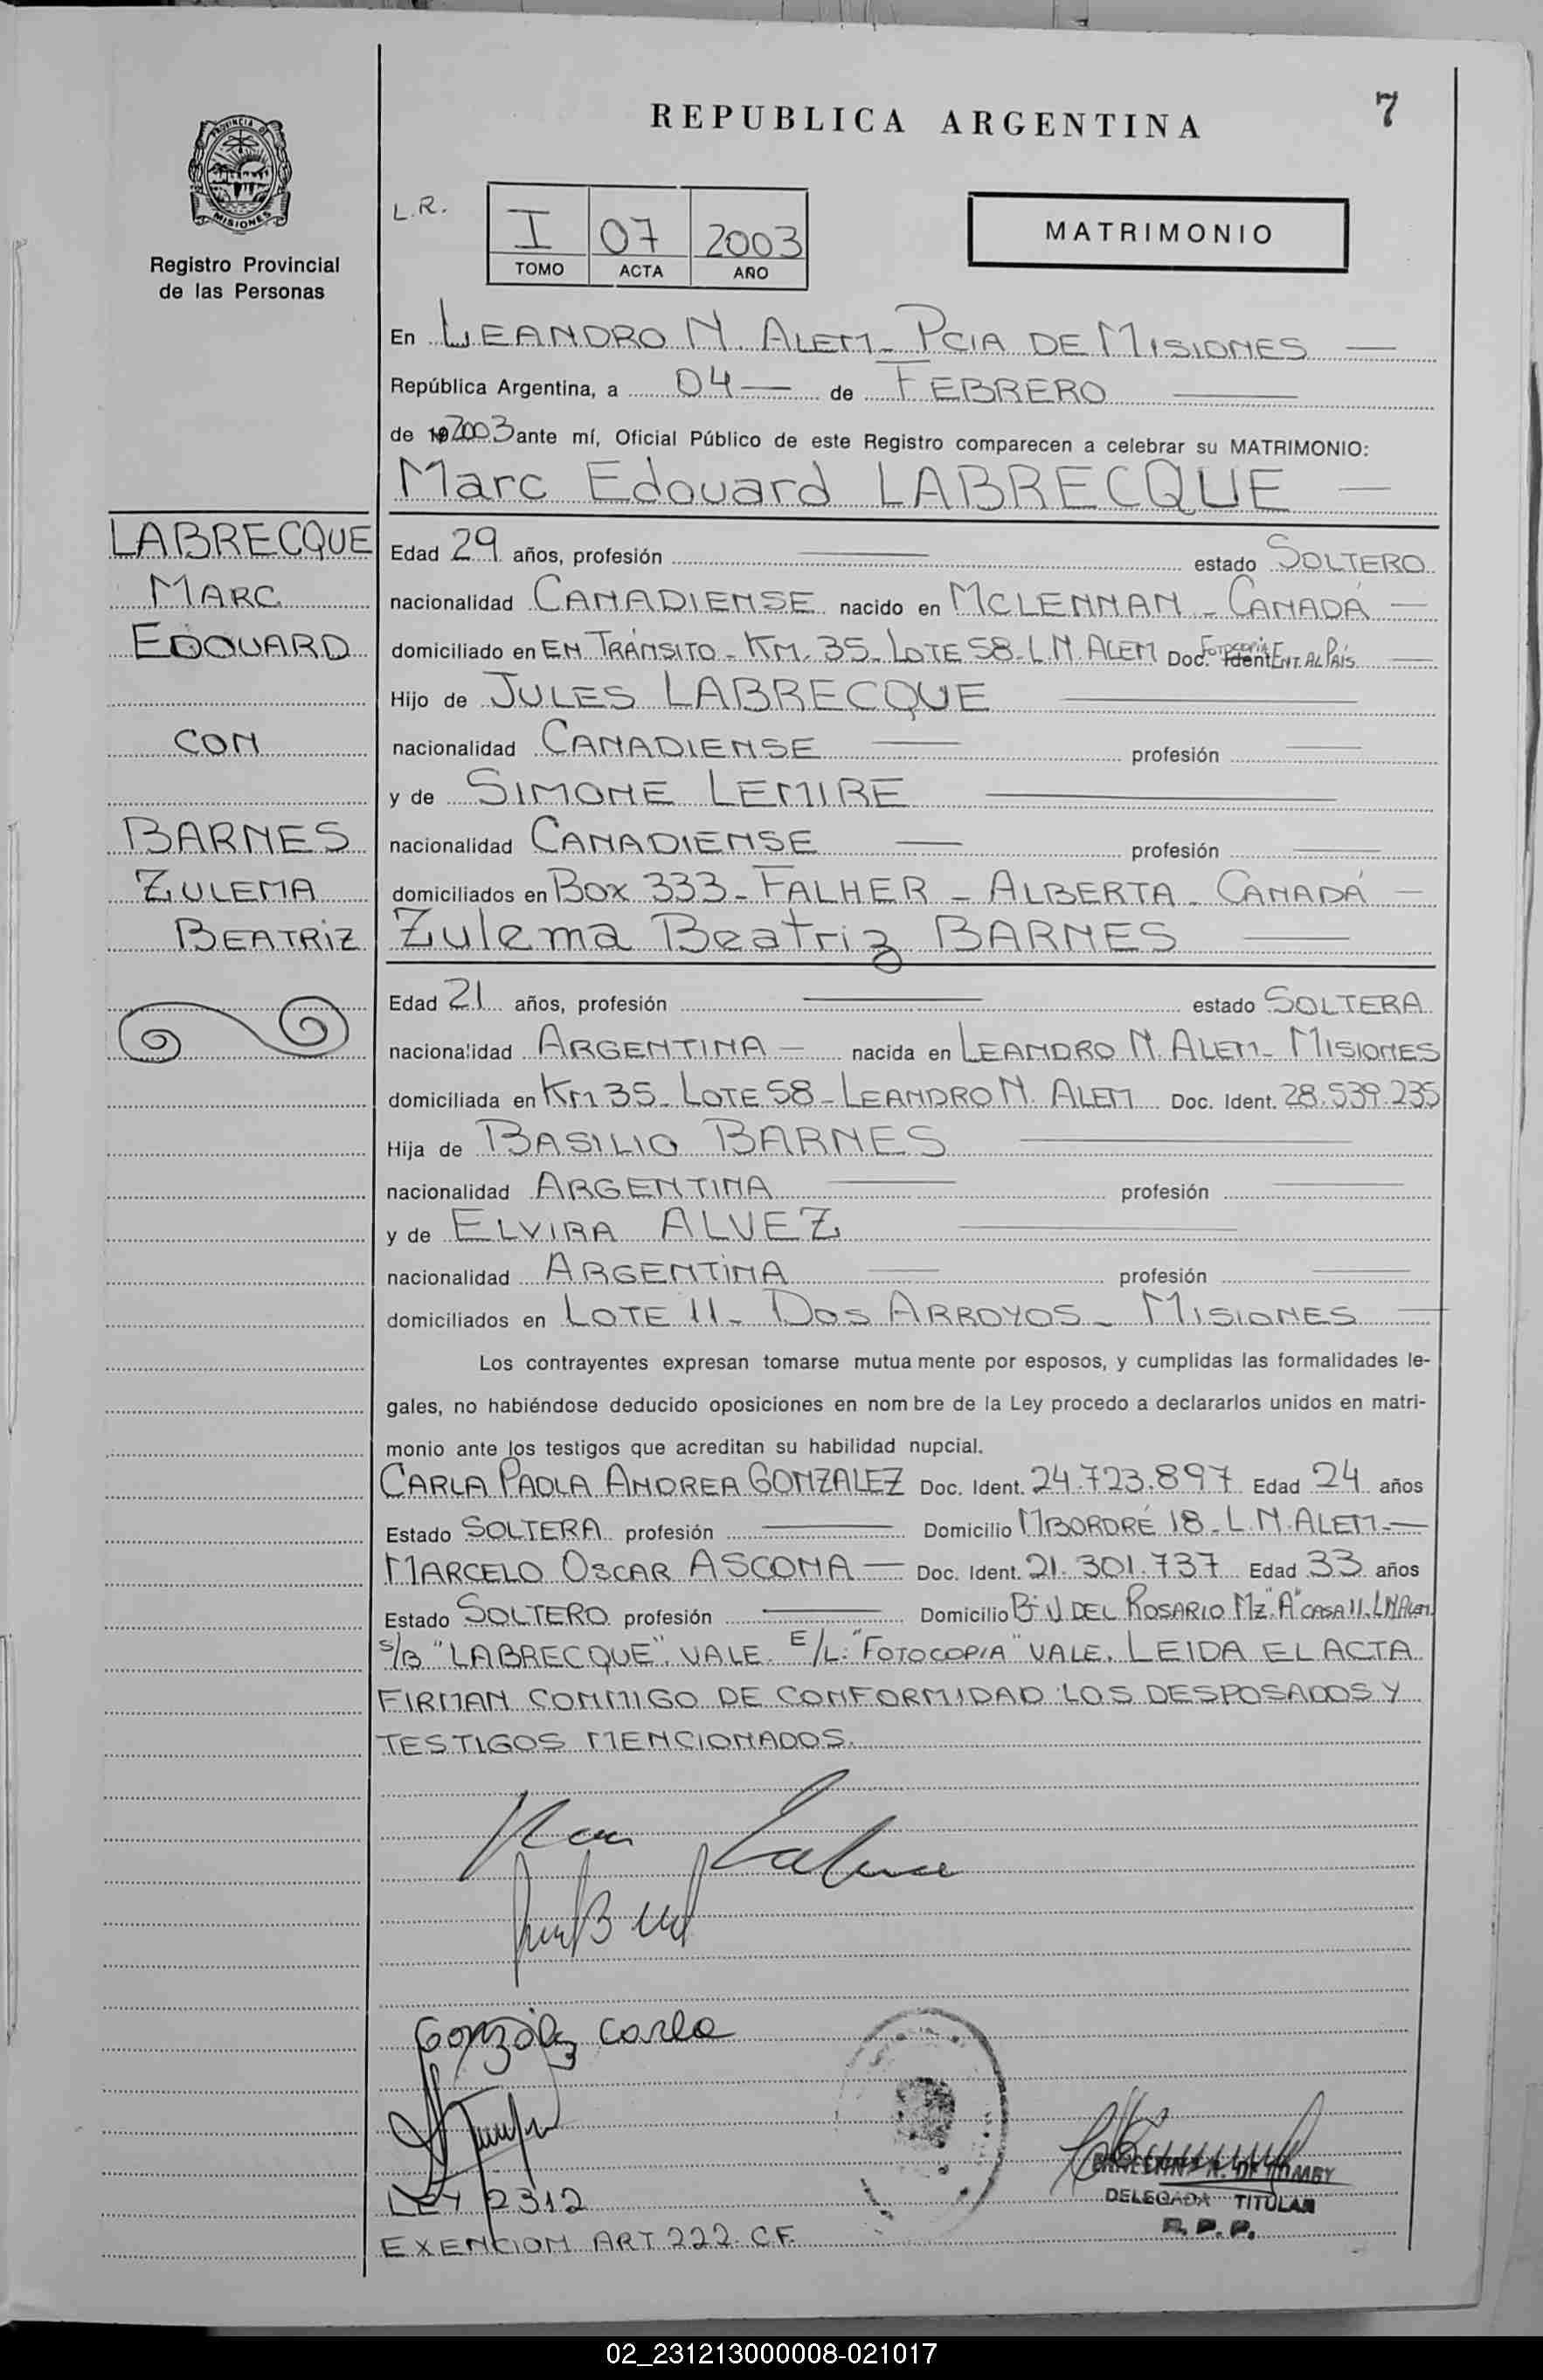 7
REPUBLICA ARGENTINA
PROVINCIA DE MISIONES
Registro Provincial
de las Personas
L.R.
I 07 2003
TOMO ACTA AÑO
MATRIMONIO
En LEANDRO N. ALEM - PCIA DE MISIONES —
República Argentina, a 04 — de FEBRERO —
de 19 2003 ante mí, Oficial Público de este Registro comparecen a celebrar su MATRIMONIO:
Marc Edouard LABRECQUE —
LABRECQUE
MARC
EDOUARD
CON
BARNES
ZULEMA
BEATRIZ
Edad 29 años, profesión — estado SOLTERO
nacionalidad CANADIENSE nacido en MCLENNAN - CANADÁ —
domiciliado en EN TRÁNSITO - KM. 35 - LOTE 58 - L N ALEM Doc. Ident. FOTOCOPIA ENT. AL PAÍS —
Hijo de JULES LABRECQUE —
nacionalidad CANADIENSE — profesión —
y de SIMONE LEMIRE —
nacionalidad CANADIENSE — profesión —
domiciliados en BOX 333 - FALHER - ALBERTA - CANADÁ —
Zulema Beatriz BARNES —
Edad 21 años, profesión — estado SOLTERA
nacionalidad ARGENTINA — nacida en LEANDRO N. ALEM - MISIONES
domiciliada en KM 35 - LOTE 58 - LEANDRO N. ALEM Doc. Ident. 28.539.235
Hija de BASILIO BARNES —
nacionalidad ARGENTINA — profesión —
y de ELVIRA ALVEZ —
nacionalidad ARGENTINA — profesión —
domiciliados en LOTE 11 - DOS ARROYOS - MISIONES —
Los contrayentes expresan tomarse mutua mente por esposos, y cumplidas las formalidades le-
gales, no habiéndose deducido oposiciones en nom bre de la Ley procedo a declararlos unidos en matri-
monio ante los testigos que acreditan su habilidad nupcial.
CARLA PAOLA ANDREA GONZALEZ Doc. Ident. 24.723.897 Edad 24 años
Estado SOLTERA profesión — Domicilio MBORDRÉ 18 - L. N. ALEM. —
MARCELO OSCAR ASCONA — Doc. Ident. 21.301.737 Edad 33 años
Estado SOLTERO profesión — Domicilio Bº V DEL ROSARIO MZ. "A" CASA 11. L N ALEM
S/B "LABRECQUE". VALE. E/L: "FOTOCOPIA" VALE. LEIDA EL ACTA
FIRMAN CONMIGO DE CONFORMIDAD LOS DESPOSADOS Y
TESTIGOS MENCIONADOS.
González Carla
DELEGADA TITULAR
R. P. P.
LEY 2312
EXENCION ART 222. C.F.
02_231213000008-021017